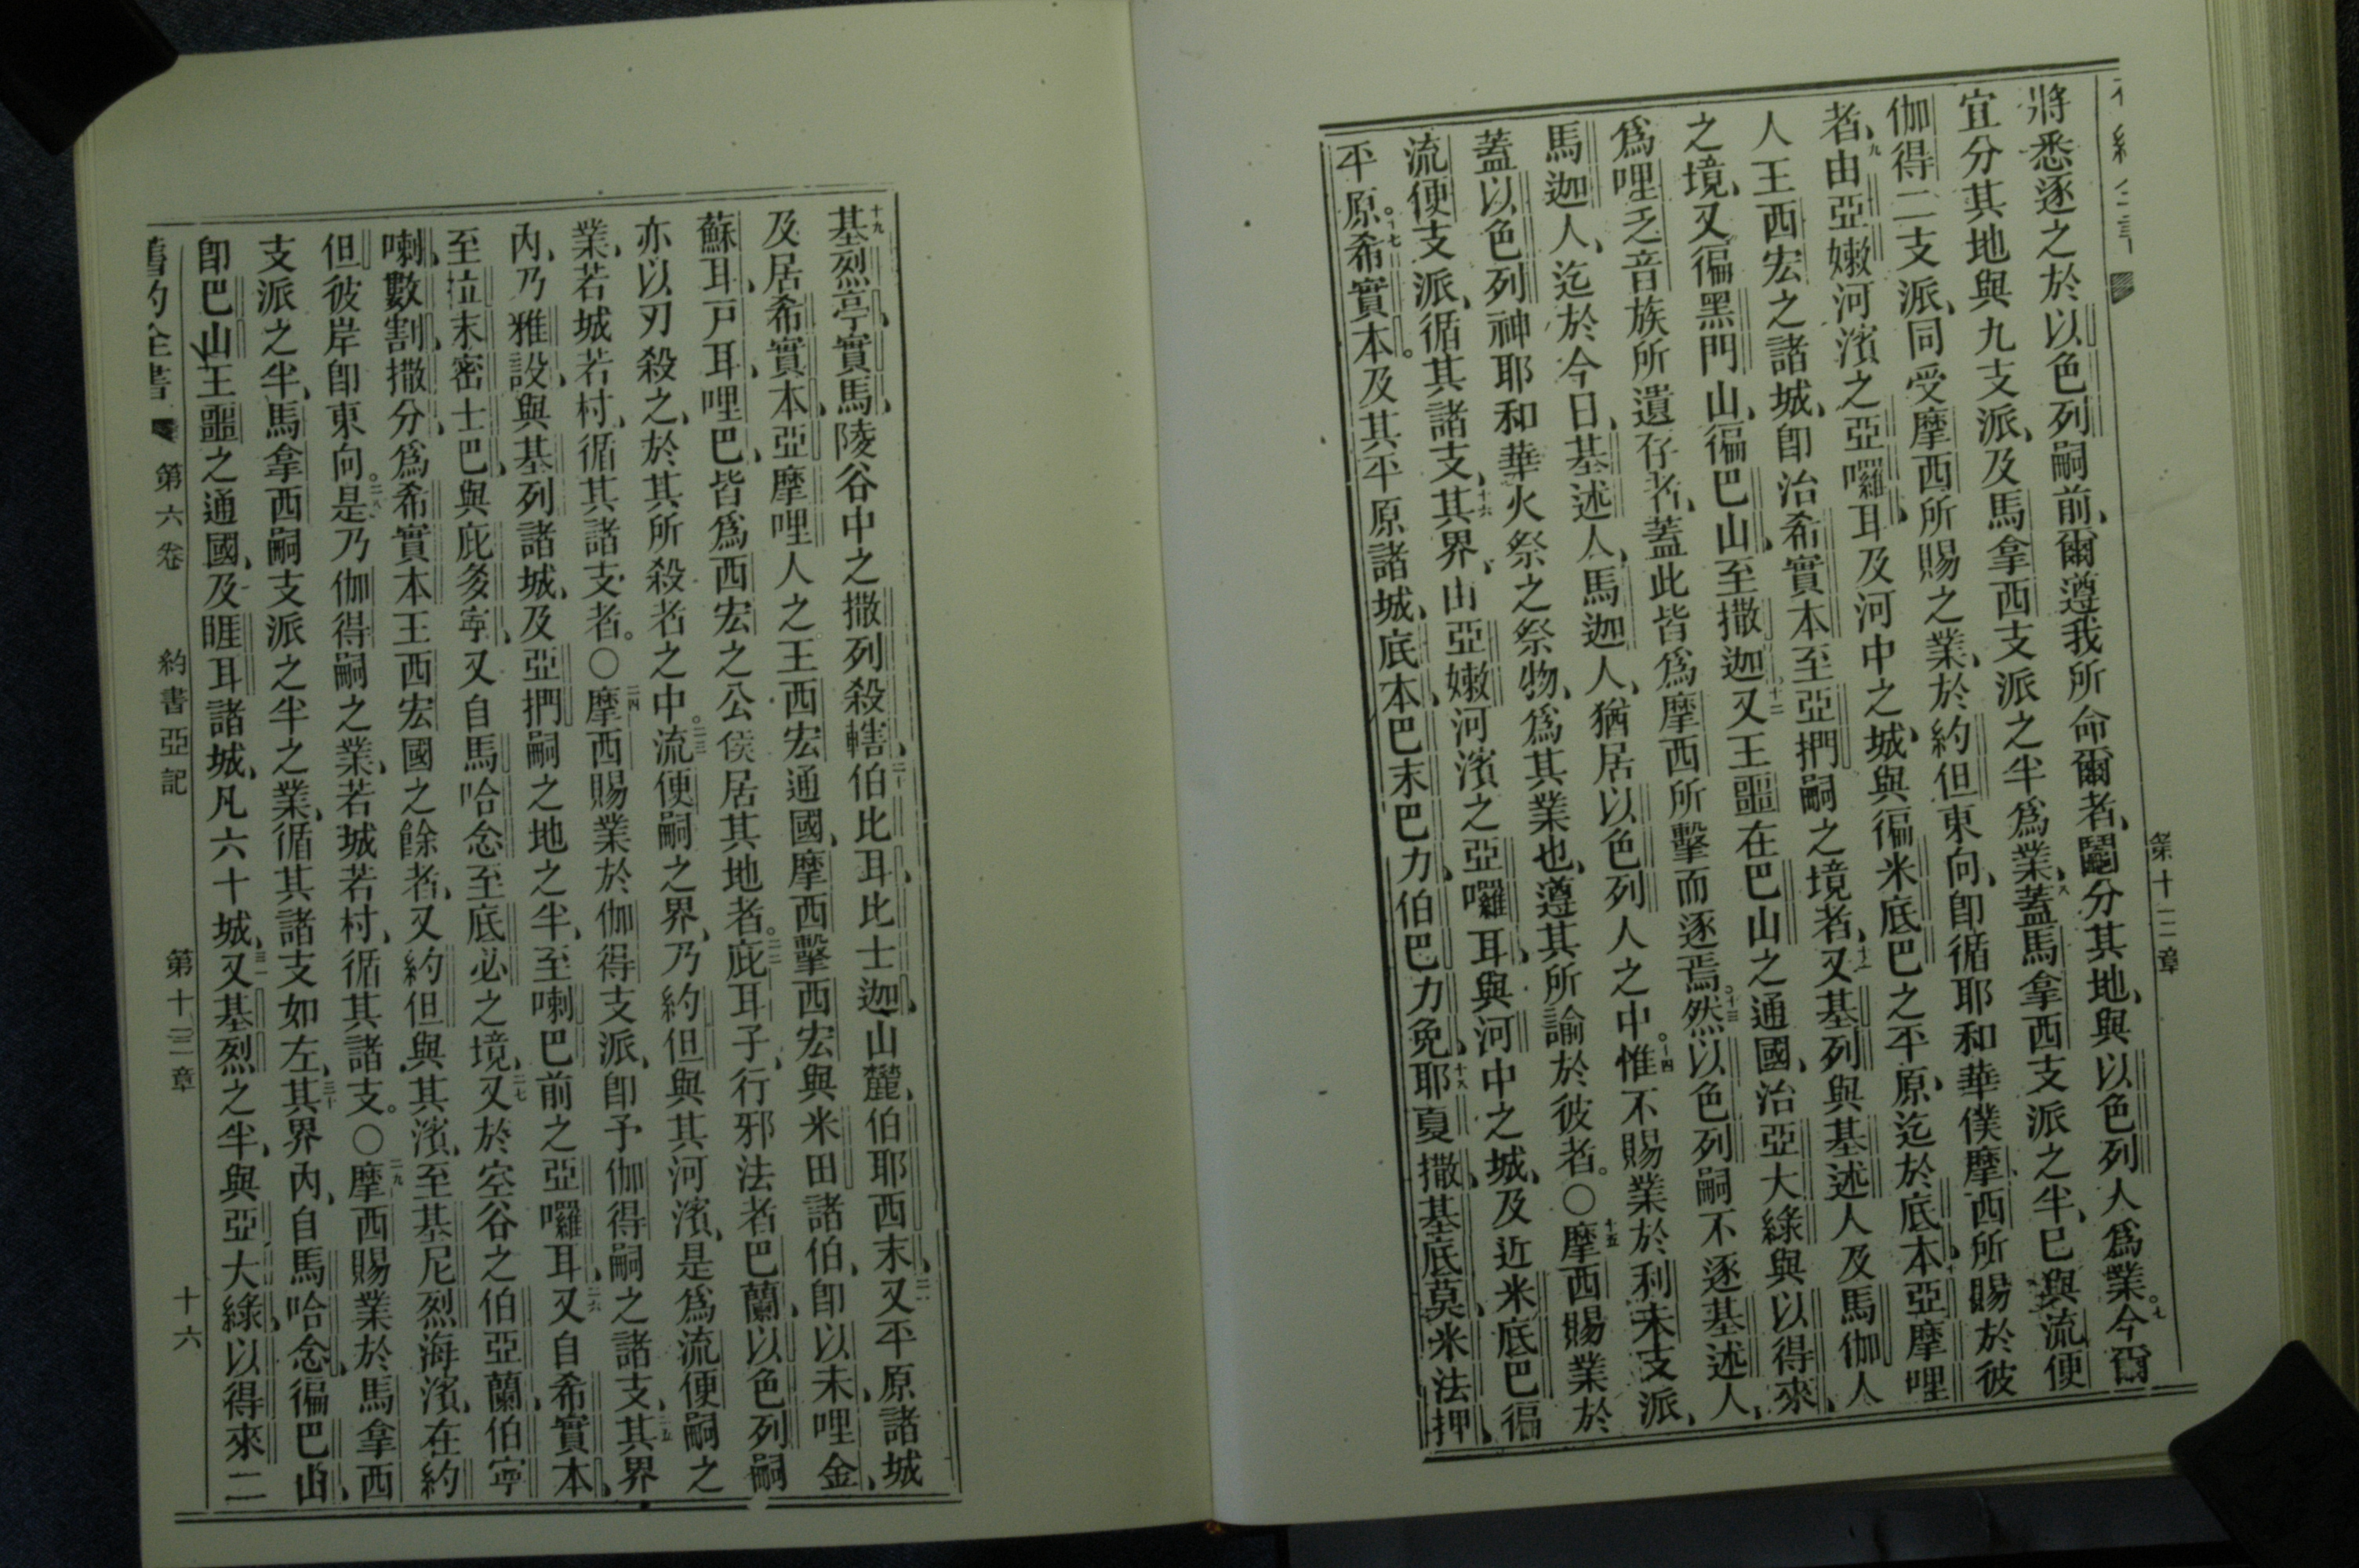 第十三章
將悉逐之於以色列嗣前、爾遵我所命爾者、鬮分其地、與以色列人爲業。七今爾
宜分其地與九支派、及馬拿西支派之半爲業、八蓋馬拿西支派之半、已與流便
伽得二支派、同受摩西所賜之業、於約但東向、卽循耶和華僕摩西所賜於彼
者、九由亞嫩河濱之亞囉耳、及河中之城、與徧米底巴之平原、迄於底本、十亞摩哩
人王西宏之諸城、卽治希實本至亞捫嗣之境者、十一又基列與基述人及馬伽人
之境、又徧黑門山、徧巴山、至撒迦、十二又王噩在巴山之通國、治亞大綠與以得來、
爲哩乏音族所遺存者、蓋此皆爲摩西所擊而逐焉。十三然以色列嗣不逐基述人、
馬迦人、迄於今日、基述人、馬迦人、猶居以色列人之中。十四惟不賜業於利未支派、
蓋以色列神耶和華火祭之祭物、爲其業也、遵其所諭於彼者。〇十五摩西賜業於
流便支派、循其諸支、十六其界、由亞嫩河濱之亞囉耳、與河中之城、及近米底巴徧
平原。十七希實本。及其平原諸城、底本、巴末巴力、伯巴力免、十八耶夏撒、基底莫、米法押、
十九基烈亭、實馬、陵谷中之撒列殺轄、二十伯比耳、比士迦山麓、伯耶西末、二一又平原諸城
及居希實本、亞摩哩人之王西宏通國、摩西擊西宏與米田諸伯、卽以未、哩金、
蘇耳、戸耳、哩巴、皆爲西宏之公侯居其地者。二二庇耳子、行邪法者巴蘭、以色列嗣
亦以刃殺之、於其所殺者之中。二三流便嗣之界、乃約但與其河濱、是爲流便嗣之
業、若城若村、循其諸支者。〇二四摩西賜業於伽得支派、卽予伽得嗣之諸支、二五其界
內、乃雅設、與基列諸城、及亞捫嗣之地之半、至喇巴前之亞囉耳、二六又自希實本、
至拉末密士巴、與庇多寧、又自馬哈念至底必之境、二七又於空谷之伯亞蘭、伯寧
喇、數割、撒分、爲希實本王西宏國之餘者、又約但與其濱、至基尼烈海濱、在約
但彼岸卽東向。二八是乃伽得嗣之業、若城若村、循其諸支。〇二九摩西賜業於馬拿西
支派之半、馬拿西嗣支派之半之業、循其諸支如左、三十其界內、自馬哈念、徧巴山、
卽巴山王噩之通國、及睚耳諸城、凡六十城、三一又基烈之半、與亞大綠、以得來二
舊約全書 第六卷 約書亞記 第十三章 十六